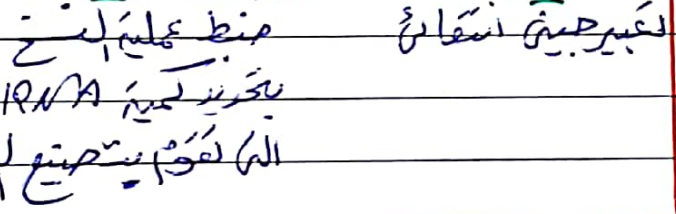 تعبير جيني انتقائي ضبط عملية النسخ
بتحديد كمية RNA
التي تقوم بتصنيع